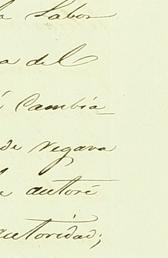 Labor
del
Cambia
de Negara
autoré
autoridad;